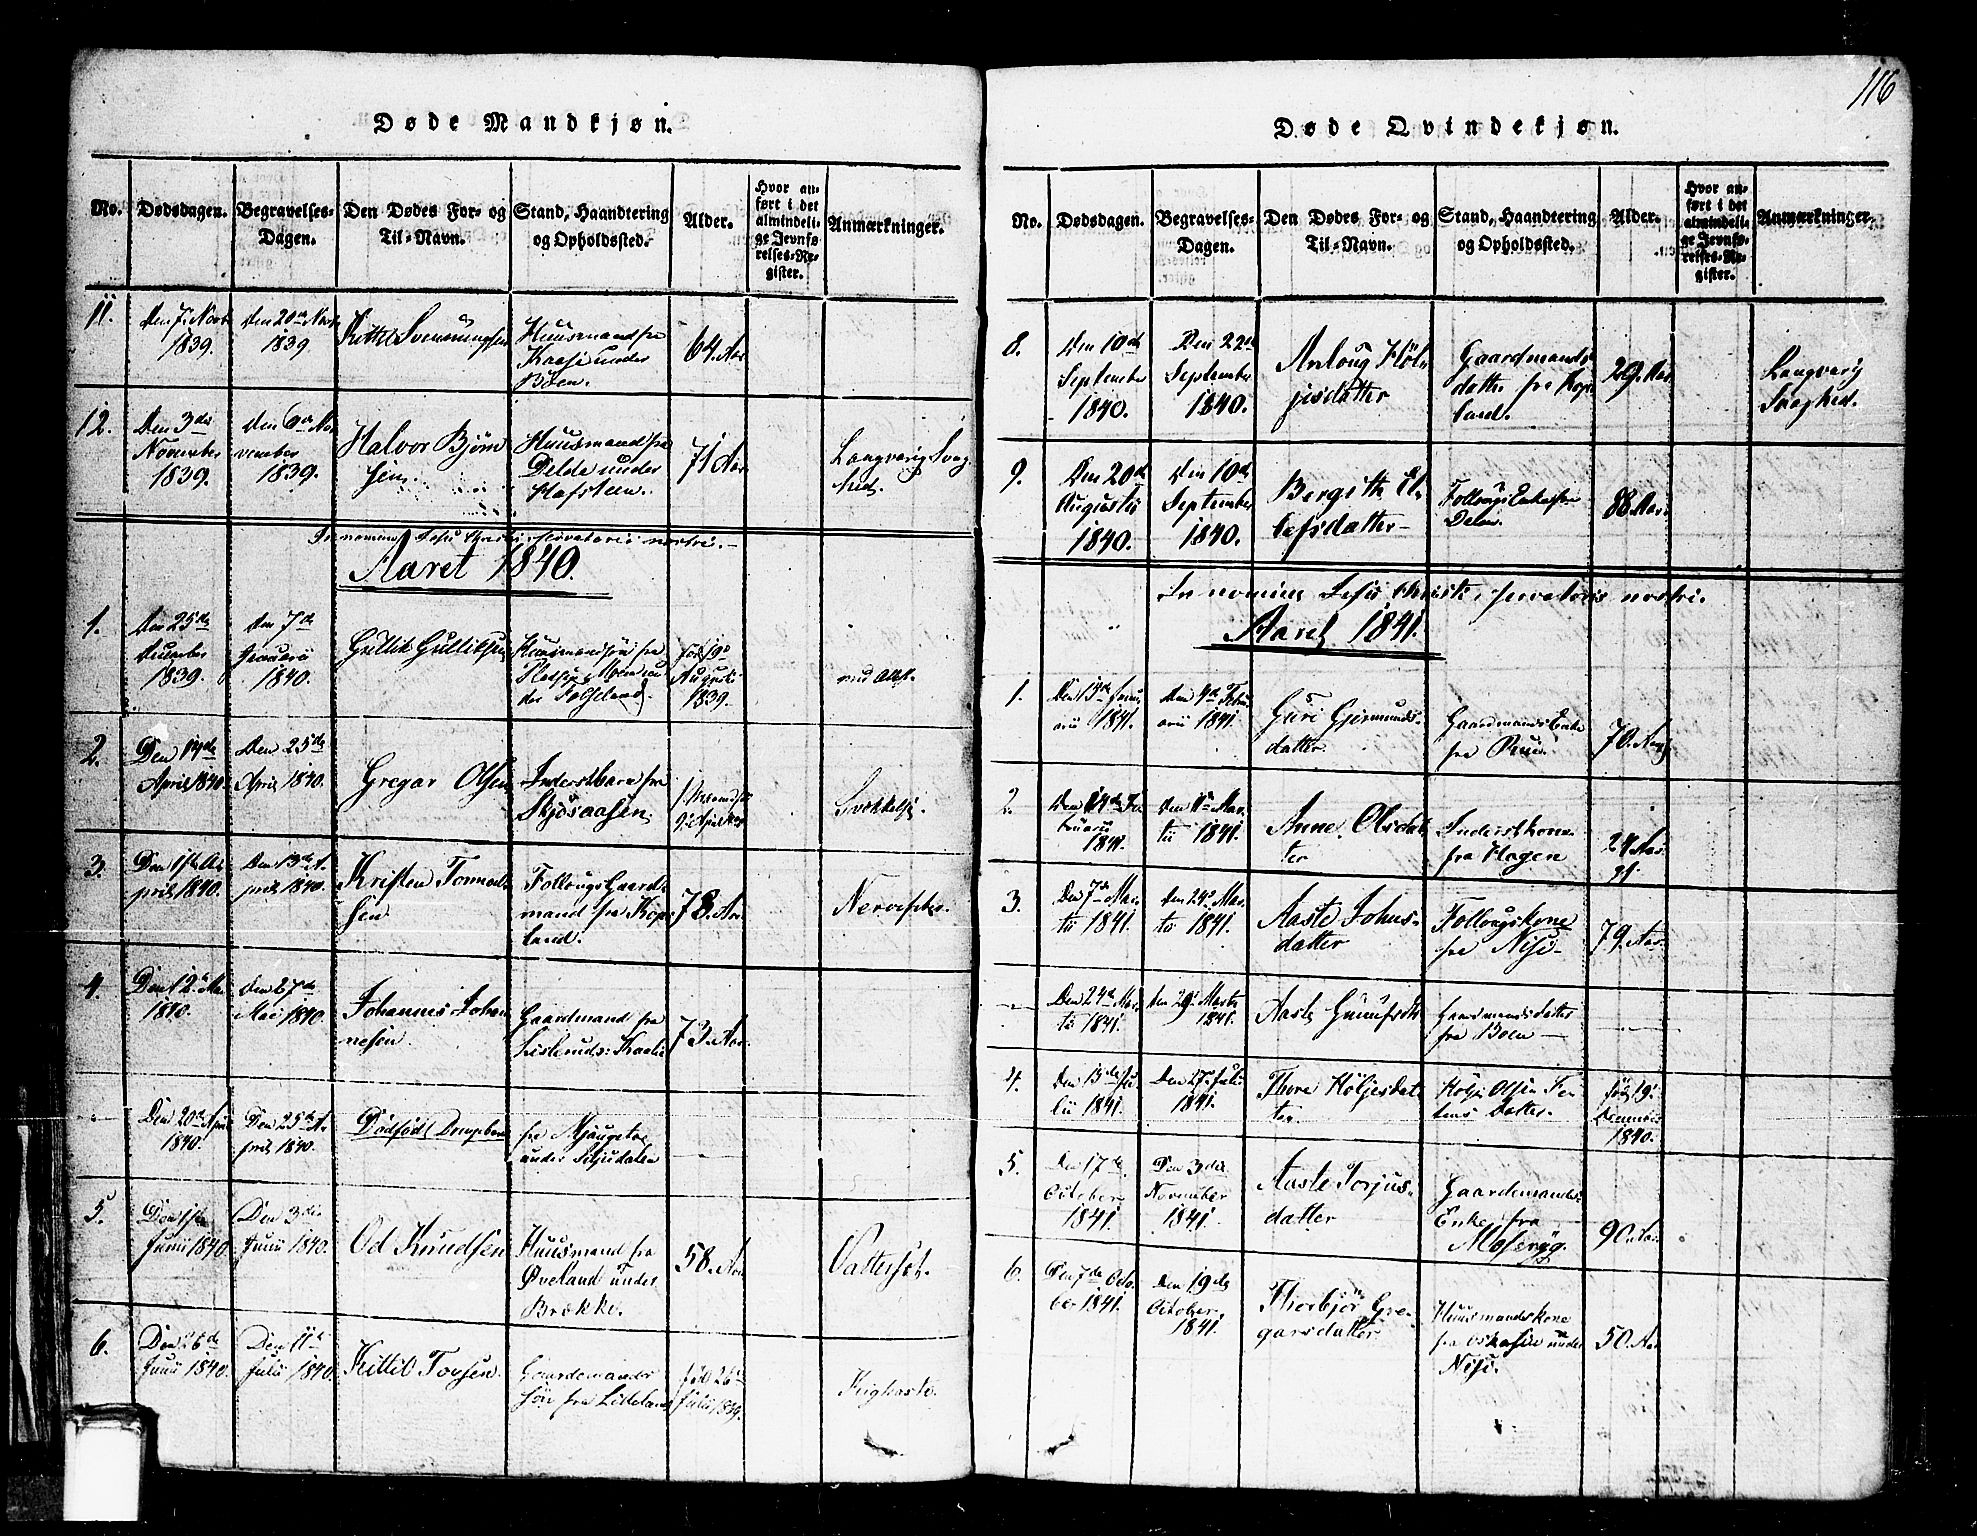 116
Døde Mandkjøn.
No. Dødsdagen. Begravelses-Dagen. Den Dødes For- og Til-Navn. Stand, Haandtering og Opholdssted. Alder. Hvor anført i det almindelige Jevnførelses-Register. Anmærkninger.
11. Den 7. Novr
1839.
Den 20de Novr
1839.
Kittel Svennungsen
Huusmand fra
Kaase under
Boen.
64. Aar
12. Den 3die
November
1839.
den 6te No-
vember
1839.
Halvor Bjørn
sen.
Huusmand fra
Delde under
Hafsteen.
71 Aar
Langvarig Svag
hed.
In nomine Jesu Christi, servatoris nostri.
Aaret 1840.
1. Den 25de
1839.
den 7de
Januarii
1840.
Gullik Gulliksen
Huusmandssøn fra
Født 19de
Augusti
1839.
2. Den 14de
April 1840.
Den 25de
April 1840.
Gregar Olsen
Inderstbarn fra
Skjøsaasen.
3. Den 1ste A-
pril 1840.
Den 13de A-
pril 1840.
Kristen Tormod-
sen
Follougs Gaard-
mand fra Kop-
land.
78. Aar
4. Den 12te Mai
1840.
den 27de
Mai 1840.
Johannes Johan-
nesen
Gaardmand fra
73. Aar
- Den 20de April
1840.
Den 25de A-
pril 1840.
Dødfødt Drengebarn
fra
under
-
5. Den 1ste
Junii 1840.
Den 3die
Junii 1840.
Od Knudsen
Huusmand fra
Øveland under
Brække.
58. Aar
Vattersot.
6. Den 26de
Junii 1840.
Den 11te
Julii 1840.
Kittil Tovsen.
Gaardemands
søn fra
fød 26de
Julii 1839.
Kighoste.
Døde Qvindekjøn.
No. Dødsdagen. Begravelses-Dagen. Den Dødes For- og Til-Navn. Stand, Haandtering og Opholdssted. Alder. Hvor anført i det almindelige Jevnførelses-Register. Anmærkninger.
8. Den 10de
September
1840.
Den 22de
September
1840.
Anloug Høl-
jesdatter
Gaardmands
datter fra Kop-
land.
29. Aar
Langvarig
Svaghed.
9. Den 20de
Augusti
1840.
Den 10de
September
1840.
Bergitte El-
lefsdatter
Follougs Enke fra
88. Aar
In nomine Jesu Christi, servatoris nostri.
Aaret 1841.
1. Den 13de Janu-
arii 1841.
Den 4de Febru-
arii 1841.
Guri Gjermunds-
datter
Gaardmands Enke
fra
70. Aar
2. Den 14de Fe-
bruarii
1841.
Den 1ste Mar-
tii 1841.
Anne Olsdat-
ter
Inderstkone
fra Hagen
24 Aar
3. Den 7de Mar-
tii 1841.
den 24de Mar-
tii 1841.
Aaste Johns-
datter
Follougskone
fra Nisi
79. Aar
- Den 24de Mar-
tii 1841.
den 29de Martii
1841.
Aaste
Gaardmandsdatter
fra Boen
4. Den 13de Ju-
lii 1841.
Den 27. Julii
1841.
Thore Høljesdat-
ter
Høljer Olsen
Datter.
fød 19de
1840.
5. Den 17de
October
1841.
Den 3die
November
1841.
Aaste Torjus-
datter
Gaardemands-
Enke fra
Moserøg.
90. Aar
6. Den 7de Octo-
ber 1841.
Den 19de
October
1841.
Thorbjør Gre-
garsdatter
Huusmandskone
fra under
Nisi.
50. Aar